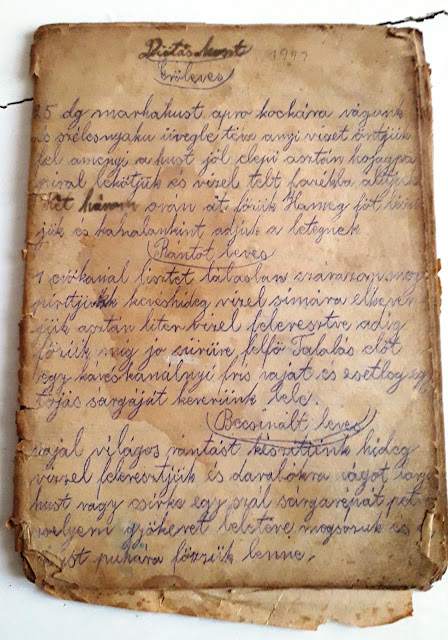 Diétás koszt 1992
Erőleves
25 dg marhahust apro kockára vágunk
és szélesnyaku üvegbe téve anyi vizet öntjük
fel amenyi a hust jól elepi asztán hojagpa
pirosal lekötjük és vizel telt fazékba
három orán át főzük
jük és kanalankint adjuk a betegnek
Rántot leves
1 evőkanal lisztet lábasban szárazon meg
pirittjuk kevés hideg vizel simára elkever
jük asztán liter vizel feleresztve adig
főzük mig jo sürüre felfő Talalás előt
egy kávés kanálnyi fris vajat és esetleg egy
tojás sárgáját keverünk bele.
Becsinált leves
vajal világos rántást készittünk hideg
vizzel feleresztjük és darabokra vágot
hust vagy csirke egy szál sárgarépát
gyökeret beletéve megsózuk és a
hust puhára főzzük benne.